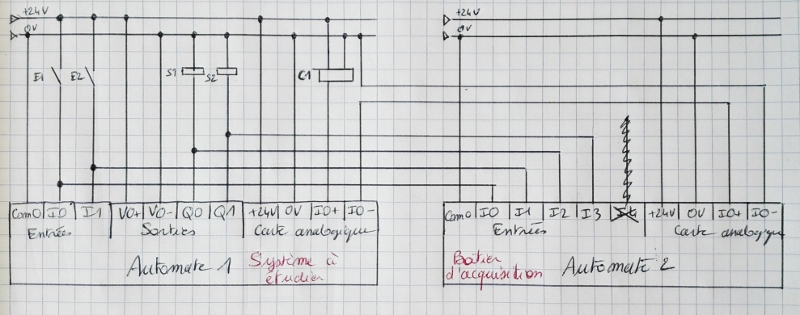 +24V
0V
+24V
0V
E1
E2
S1
S2
C1
Com0 I0 I1 V0+ V0- Q0 Q1 +24V 0V I0+ I0-
Entrées Sorties Carte analogique
Automate 1 Système à étudier
Com0 I0 I1 I2 I3 +24V 0V I0+ I0-
Entrées Carte analogique
Boîtier d'acquisition Automate 2